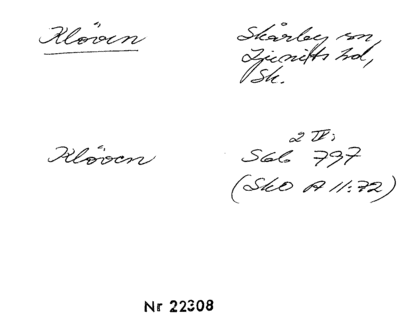 Klöven
Skårby sn,
Ljunits hd,
Sk.
2 IV:
Klöven
Sbb 797
(SkO A 11:72)
Nr 22308